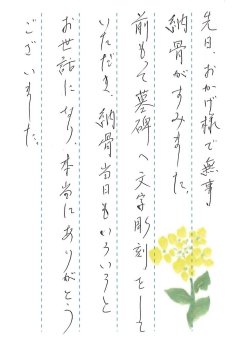 先日、おかげ様で無事
納骨がすみました。
前もって墓碑へ文字彫刻をして
いただき、納骨当日もいろいろと
お世話になり、本当にありがとう
ございました。